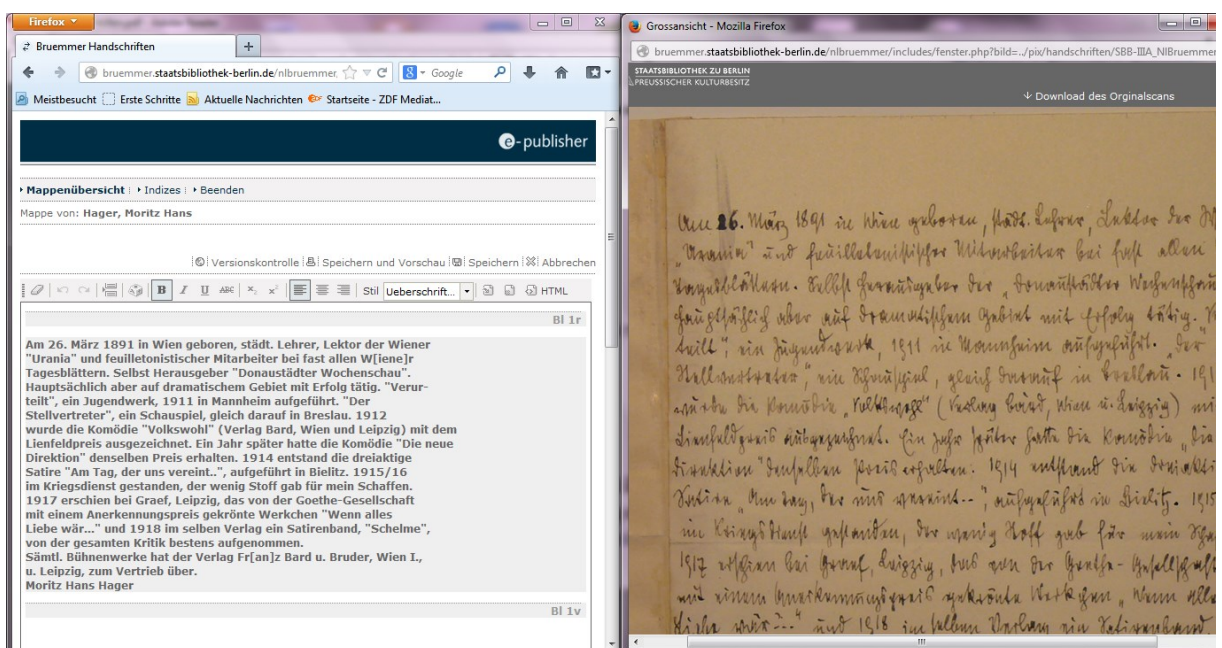 Firefox
Bruemmer Handschriften
bruemmer.staatsbibliothek-berlin.de/nlbruemmer,
Google
Meistbesucht Erste Schritte Aktuelle Nachrichten Startseite - ZDF Mediat...
e-publisher
Mappenübersicht Indizes Beenden
Mappe von: Hager, Moritz Hans
Versionskontrolle Speichern und Vorschau Speichern Abbrechen
B I U ABC x₂ x² Stil Ueberschrift... HTML
Bl 1r
Am 26. März 1891 in Wien geboren, städt. Lehrer, Lektor der Wiener
"Urania" und feuilletonistischer Mitarbeiter bei fast allen W[iene]r
Tagesblättern. Selbst Herausgeber "Donaustädter Wochenschau".
Hauptsächlich aber auf dramatischem Gebiet mit Erfolg tätig. "Verur-
teilt", ein Jugendwerk, 1911 in Mannheim aufgeführt. "Der
Stellvertreter", ein Schauspiel, gleich darauf in Breslau. 1912
wurde die Komödie "Volkswohl" (Verlag Bard, Wien und Leipzig) mit dem
Lienfeldpreis ausgezeichnet. Ein Jahr später hatte die Komödie "Die neue
Direktion" denselben Preis erhalten. 1914 entstand die dreiaktige
Satire "Am Tag, der uns vereint..", aufgeführt in Bielitz. 1915/16
im Kriegsdienst gestanden, der wenig Stoff gab für mein Schaffen.
1917 erschien bei Graef, Leipzig, das von der Goethe-Gesellschaft
mit einem Anerkennungspreis gekrönte Werkchen "Wenn alles
Liebe wär..." und 1918 im selben Verlag ein Satirenband, "Schelme",
von der gesamten Kritik bestens aufgenommen.
Sämtl. Bühnenwerke hat der Verlag Fr[an]z Bard u. Bruder, Wien I.,
u. Leipzig, zum Vertrieb über.
Moritz Hans Hager
Bl 1v
Grossansicht - Mozilla Firefox
bruemmer.staatsbibliothek-berlin.de/nlbruemmer/includes/fenster.php?bild=../pix/handschriften/SBB-IIIA_NlBruemmer
STAATSBIBLIOTHEK ZU BERLIN
PREUSSISCHER KULTURBESITZ
Download des Orginalscans
Am 26. März 1891 in Wien geboren, städt. Lehrer, Lektor der
„Urania" und feuilletonistischer Mitarbeiter bei fast allen
Tagesblättern. Selbst Herausgeber der „Donaustädter Wochenschau
Hauptsächlich aber auf dramatischem Gebiet mit Erfolg tätig.
teilt", ein Jugendwerk, 1911 in Mannheim aufgeführt. „Der
Stellvertreter", ein Schauspiel, gleich darauf in Breslau. 191
wurde die Komödie „Volkswohl" (Verlag Bard, Wien u. Leipzig) mi
Lienfeldpreis ausgezeichnet. Ein Jahr später hatte die Komödie „Die
Direktion" denselben Preis erhalten. 1914 entstand die dreiakti
Satire „Am Tag, der uns vereint..", aufgeführt in Bielitz. 1915
im Kriegsdienst gestanden, der wenig Stoff gab für mein Scha
1917 erschien bei Graef, Leipzig, das von der Goethe-Gesellschaft
mit einem Anerkennungspreis gekrönte Werkchen „Wenn alle
Liebe wär..." und 1918 im selben Verlag ein Satirenband,